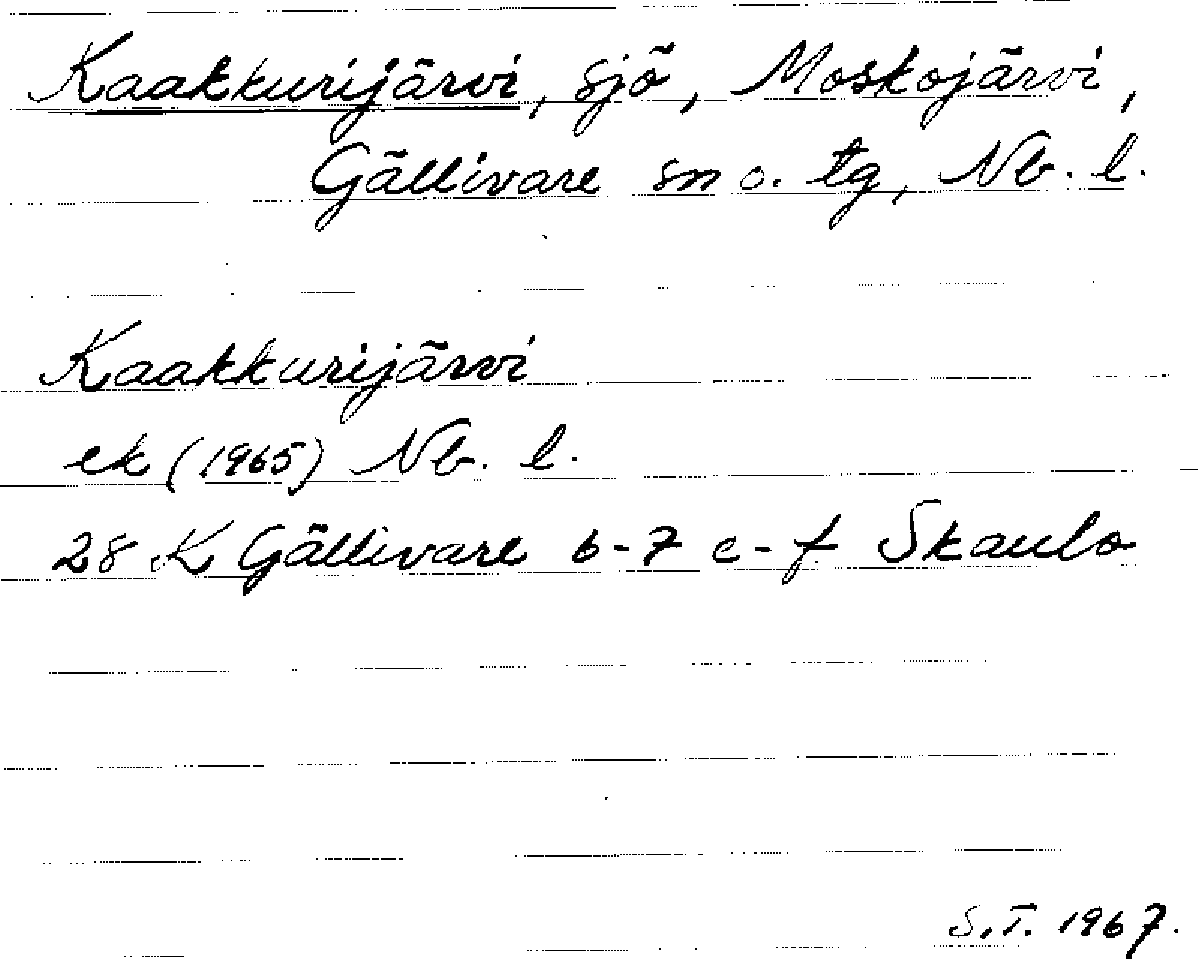 Kaakkurijärvi, sjö, Moskojärvi,
Gällivare sn o. tg, Nb. l.
Kaakkurijärvi
ek (1965) Nb. l.
28 K Gällivare 6-7 e-f Skaulo
S.T. 1967.